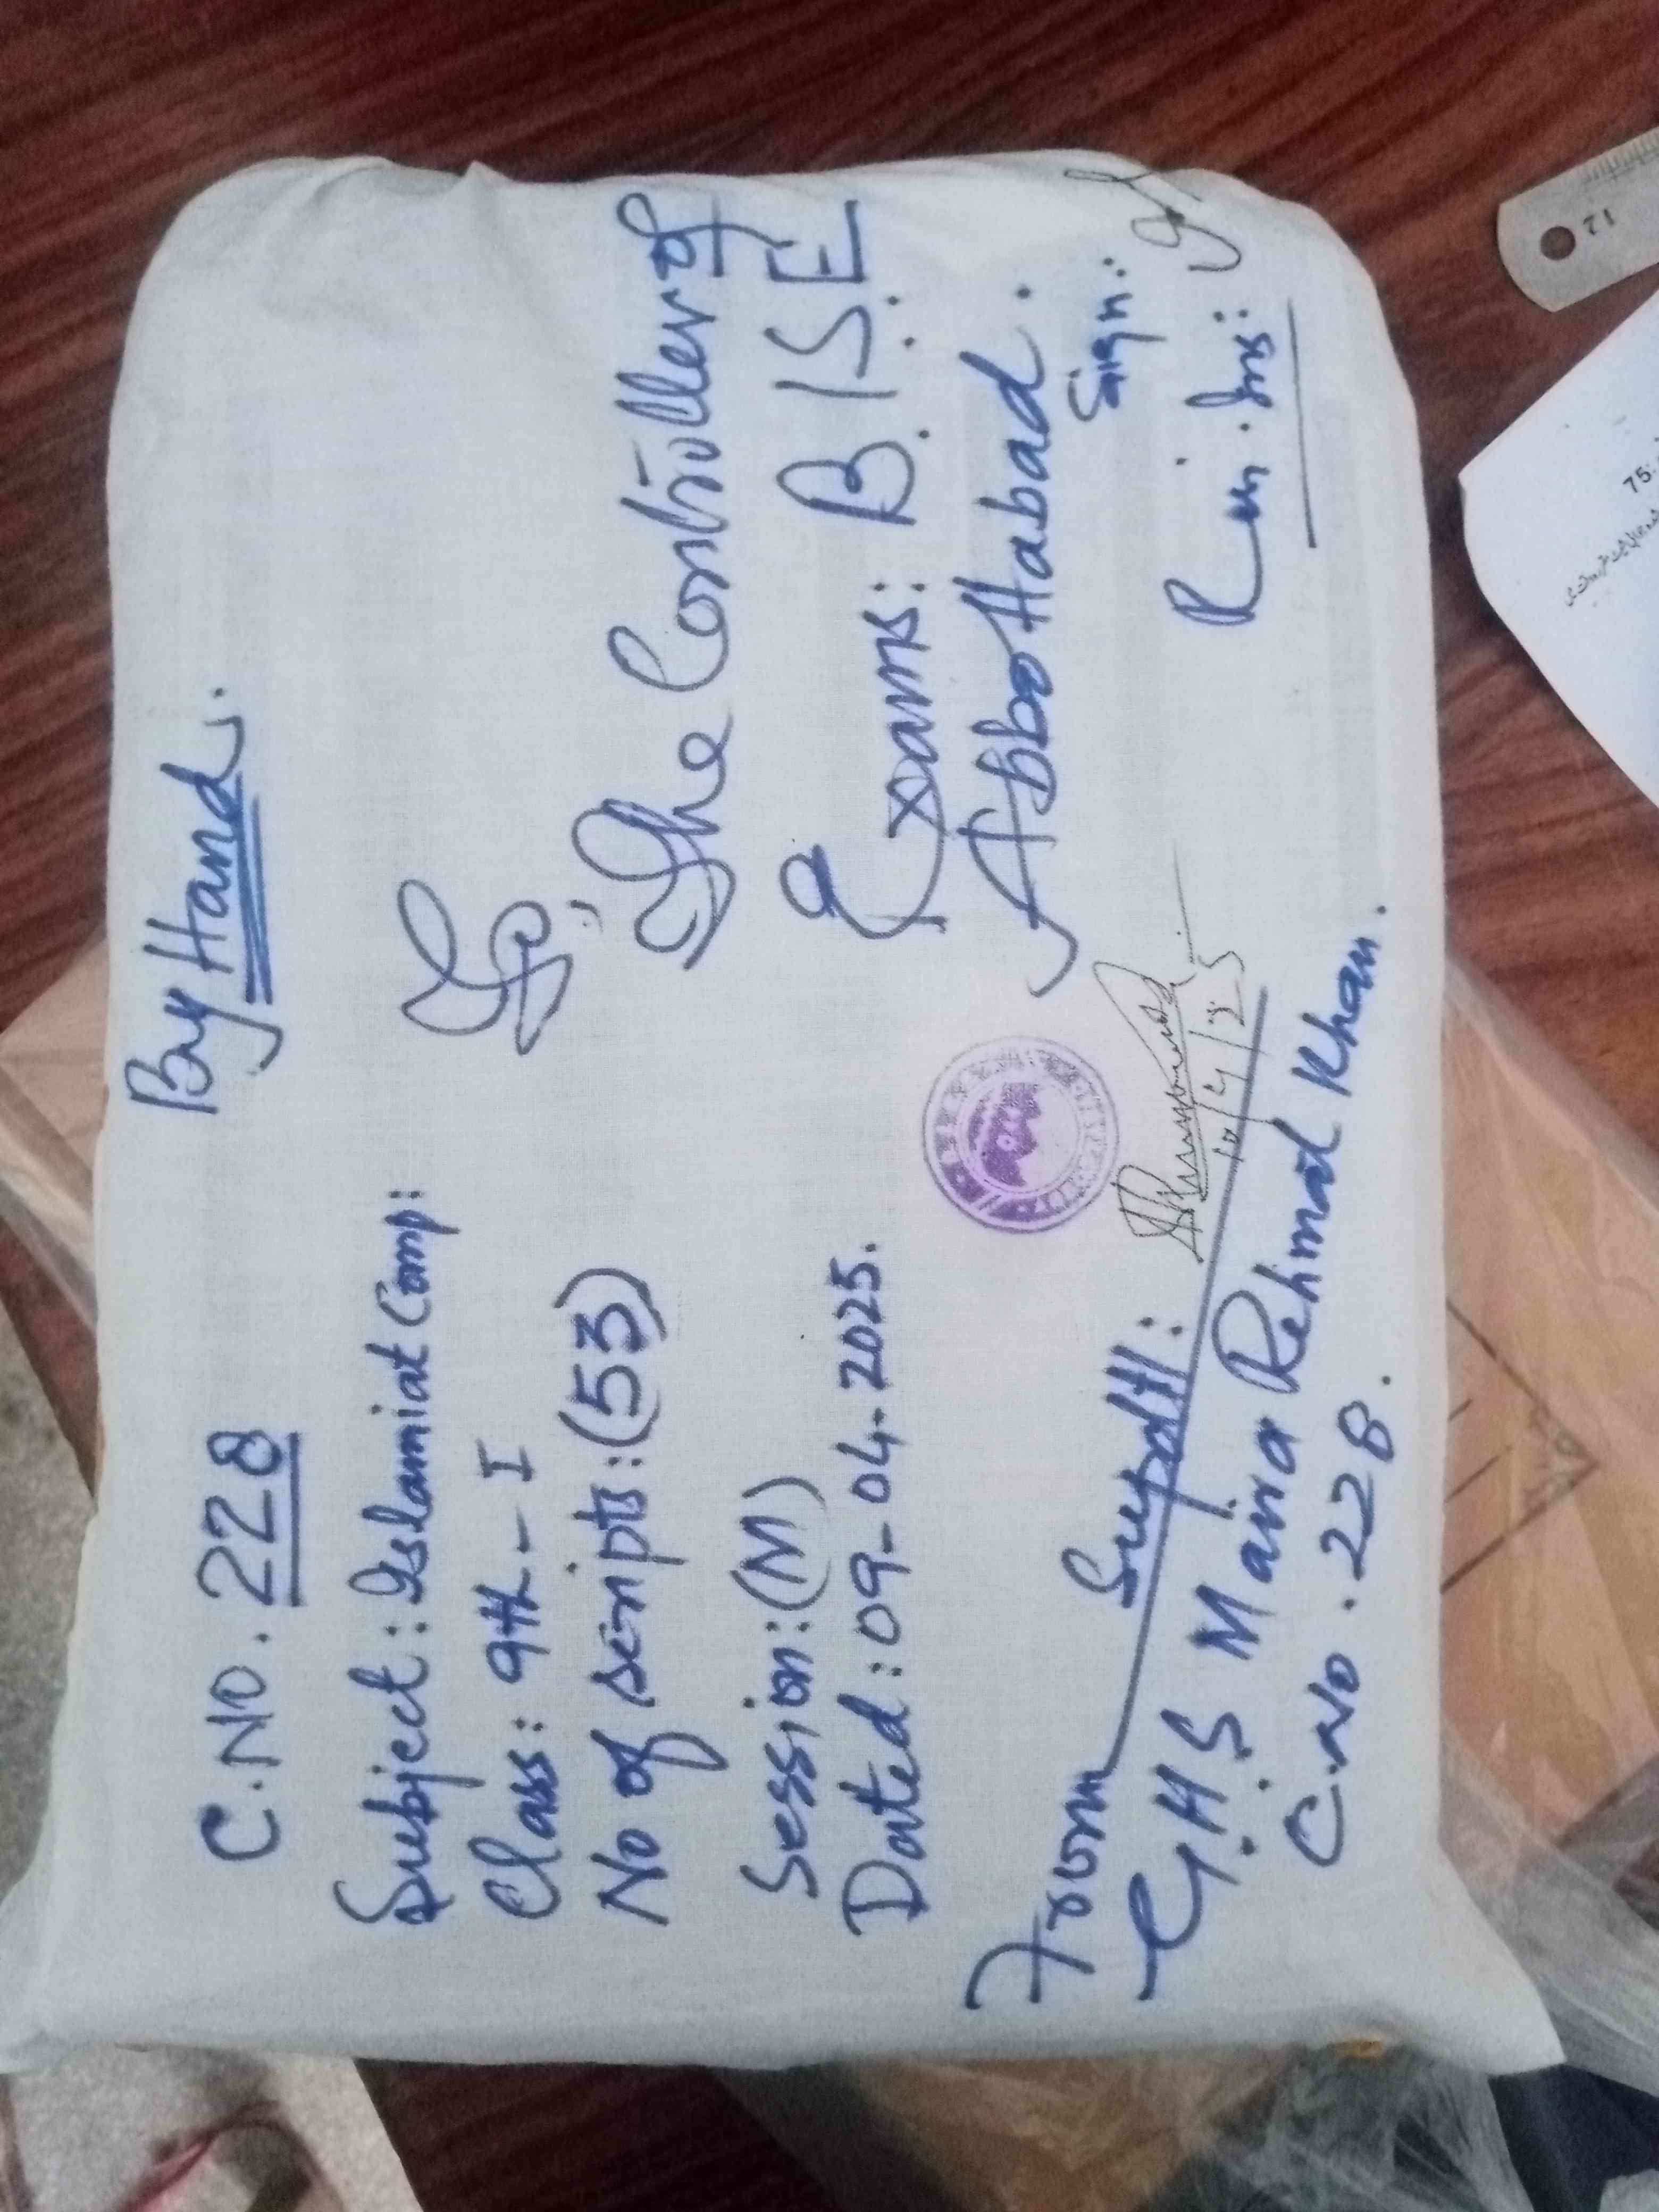 By Hand.
C.No. 228
Subject: Islamiat Comp:
Class: 9th - I
No of scripts: (53)
Session: (M)
Dated: 09-04-2025.
To,
The Controller of
Exams: B.I.S.E
Abbottabad.
Sign:
Ins:
From Supdtt:
10/4/25
G.H.S Maira Rehmat Khan.
C.No. 228.
12
75: